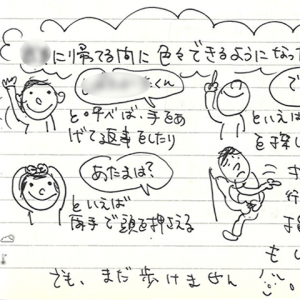 に帰ってる内に色々できるようになっ
くん
と呼べば、手をあ
げて返事をしたり
で
といえば
を探し
あたまは？
といえば
両手で頭を押える
行
も
でも、まだ歩けません